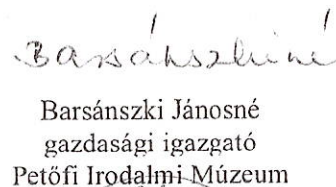 Barsánszkiné
Barsánszki Jánosné
gazdasági igazgató
Petőfi Irodalmi Múzeum